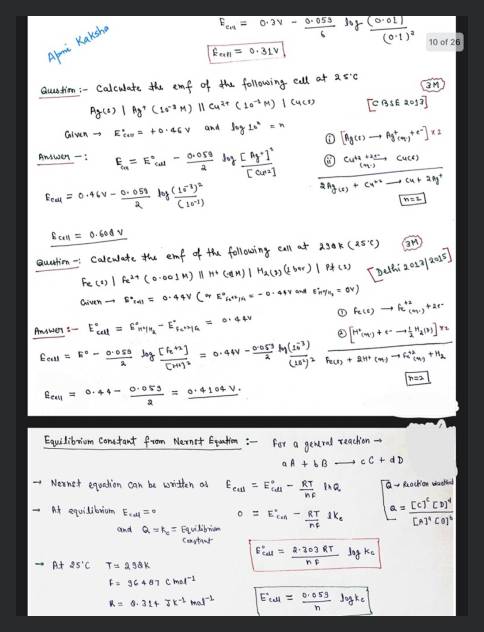 Apni Kaksha
Ecell = 0.3V - 0.059/6 log (0.01)/(0.1)²
10 of 26
Ecell = 0.31V
Question :- Calculate the emf of the following cell at 25°C
(3M)
Ag(s) | Ag⁺ (10⁻³ M) || Cu²⁺ (10⁻¹ M) | Cu(s)
[CBSE 2013]
Given → E°cell = +0.46V and log 10ⁿ = n
Answer -: Ecell = E°cell - 0.059/2 log [Ag⁺]²/[Cu⁺²]
(i) [Ag(s) → Ag⁺(aq) + e⁻] x 2
(ii) Cu⁺²(aq) + 2e⁻ → Cu(s)
2Ag(s) + Cu⁺² → Cu + 2Ag⁺
n=2
Ecell = 0.46V - 0.059/2 log (10⁻³)²/(10⁻¹)
Ecell = 0.608 V
Question -: Calculate the emf of the following cell at 298K (25°C)
(3M)
Fe(s) | Fe²⁺ (0.001M) || H⁺ ( M) | H₂(g) (1 bar) | Pt(s)
[Delhi 2013|2015]
Given → E°cell = 0.44V (or E°Fe⁺²/Fe = -0.44V and E°H⁺/H₂ = 0V)
Answer :- E°cell = E°H⁺/H₂ - E°Fe⁺²/Fe = 0.44V
① Fe(s) → Fe⁺²(aq) + 2e⁻
② [H⁺(aq) + e⁻ → ½ H₂(g)] x 2
Ecell = E° - 0.059/2 log [Fe⁺²]/[H⁺]² = 0.44V - 0.059/2 log (10⁻³)/(10⁻²)²
Fe(s) + 2H⁺(aq) → Fe⁺²(aq) + H₂
n=2
Ecell = 0.44 - 0.059/2 = 0.4104 V.
Equilibrium Constant from Nernst Equation :- For a general reaction →
aA + bB → cC + dD
→ Nernst equation can be written as Ecell = E°cell - RT/nF ln Q
Q → Reaction
Q = [C]ᶜ [D]ᵈ/[A]ᵃ [B]ᵇ
→ At equilibrium Ecell = 0
0 = E°cell - RT/nF lnKc
and Q = Kc = Equilibrium Constant
E°cell = 2.303 RT/nF log Kc
→ At 25°C T = 298K
F = 96487 C mol⁻¹
R = 8.314 JK⁻¹ mol⁻¹
E°cell = 0.059/n log Kc